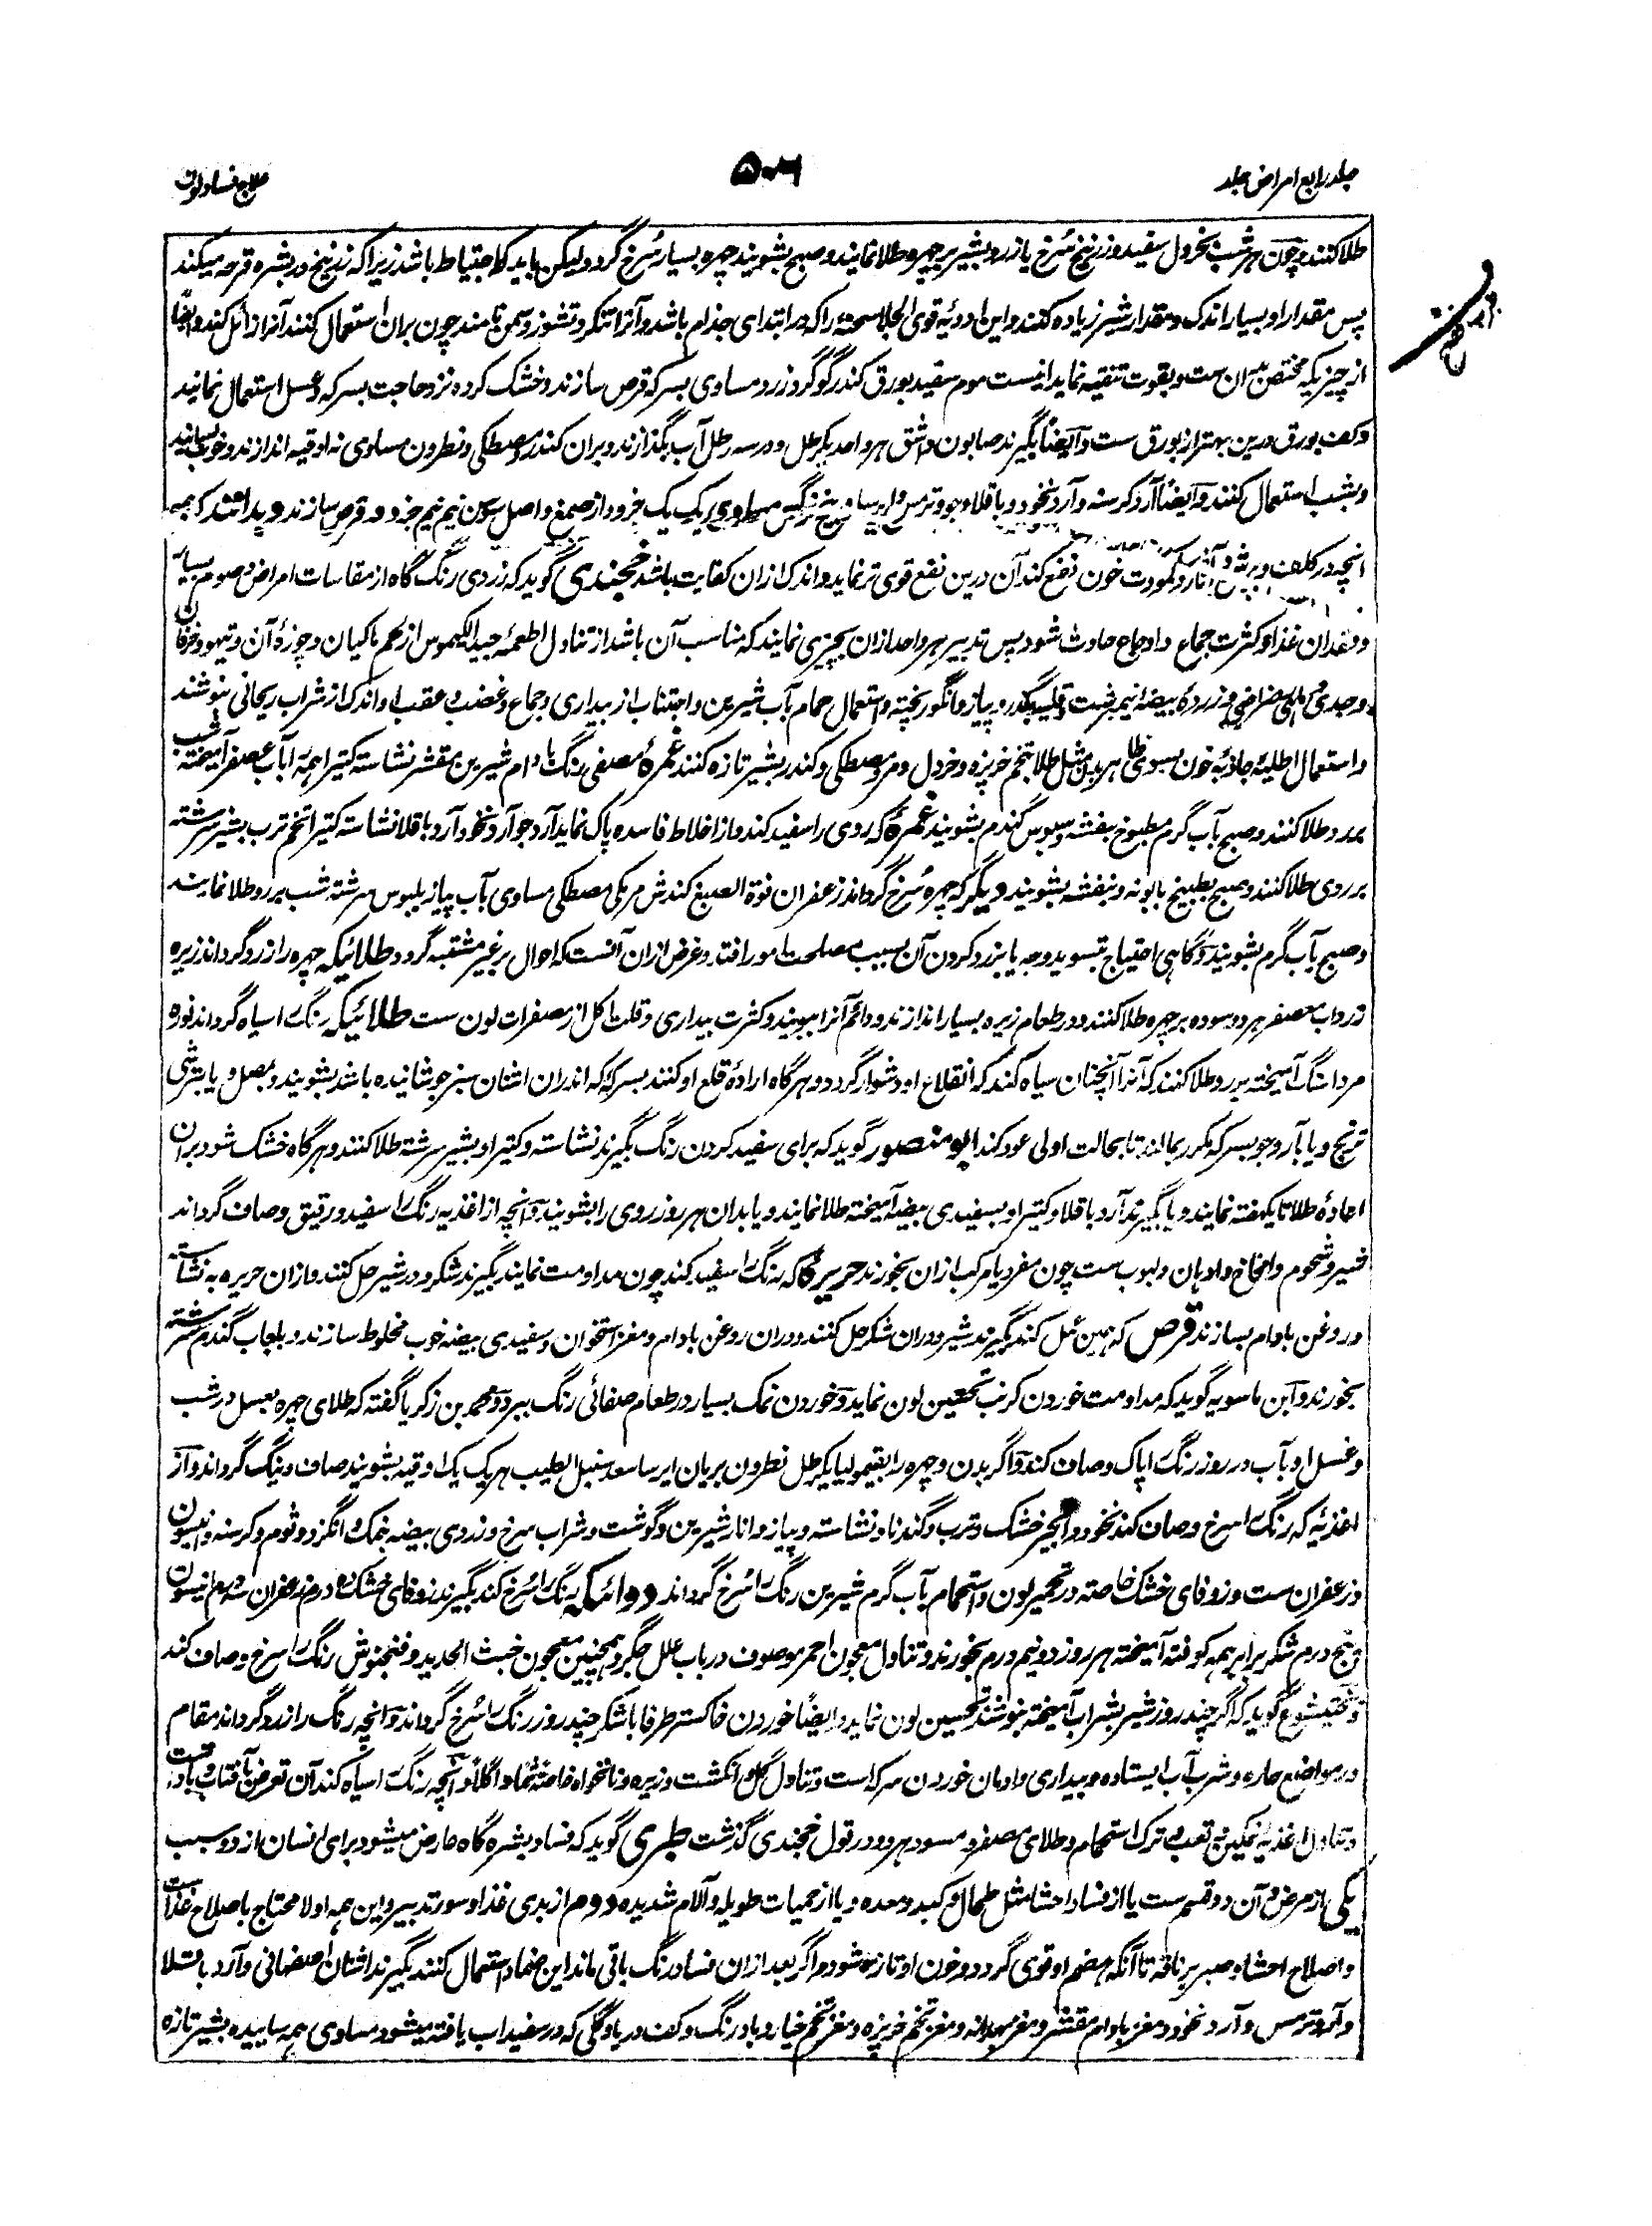 جلد رابع امراض جلد
۵۰۶
علاج فساد لون
طلا کنند و چون هر شب بخردل سفید و زرنیخ سُرخ یا زرد و بشیر بر چهره طلا نمایند و صبح بشویند چهره بسیار سُرخ گردد و لیکن باید که احتیاط باشد زیرا که زرنیخ در بشره قرحه میکند
پس مقدار او بسیار اندک و مقدار شیر زیاده کنند و این ادویه قوی الجلا سحنه را که در ابتدای جذام باشد و آنرا تنکر و تشوز و سمن نامند چون بران استعمال کنند آنرا زائل کند و ایضاً
از چیزیکه مختص بدان ست و بقوت تنقیه نماید اینست موم سفید بورق کندر گوگرد زرد مساوی بسرکه قرص سازند و خشک کرده نزد حاجت بسرکه و عسل استعمال نمایند
و کف بورق درین بهتر از بورق ست و ایضاً بگیرند صابون و اشق هر واحد یکرطل و در سه رطل آب بگذارند و بران کندر و مصطکی و نطرون مساوی نه اوقیه اندازند و خوب بسایند
و بشب استعمال کنند و ایضاً آرد کرسنه و آرد نخود و باقلا و جو و ترمس و ایرسا و بیخ نرگس مساوی یک یک جزو و از صمغ و اصل سوسن نیم نیم جزو قرص سازند و بدانند که همه
آنچه در کلف و برش و آثار و کمودت خون نفع کند آن درین نفع قوی تر نماید و اندک ازان کفایت باشد خجندی گوید که زردی رنگ گاه از مقاسات امراض و صوم بسیار
و فقدان غذا و کثرت جماع و اوجاع حادث شود پس تدبیر هر واحد ازان بچیزی نمایند که مناسب آن باشد از تناول اطعمه جید الکیموس از لحم ماکیان و چوزهٔ آن و تیهو و خرفان
و جدی و ماهی رضراضی و زردهٔ بیضه نیمبرشت و قلیه بگذر و پیاز و انگور پخته و استعمال حمام بآب شیرین و اجتناب از بیداری و جماع و غضب و عقب او اندک از شراب ریحانی بنوشند
و استعمال اطلیه جاذبه خون بسوی ظاهر بدن مثل طلا بتخم خرپزه و خردل و مر و مصطکی و کندر بشیر تازه کنند غمرهٔ مصفی رنگ بادام شیرین مقشر نشاسته کتیرا همه را بآب عصفر آمیخته شب
بر رو طلا کنند و صبح بآب گرم مطبوخ بنفشه و سبوس گندم بشویند غمرهٔ که روی را سفید کند و از اخلاط فاسده پاک نماید آرد جو آرد نخود آرد باقلا نشاسته کتیرا تخم ترب بشیر سرشته
بر روی طلا کنند و صبح بطبیخ بابونه و بنفشه بشویند دیگر که چهره سُرخ گرداند زعفران فوة الصبغ کندش مر مکی مصطکی مساوی بآب پیاز بلبوس سرشته شب بر رو طلا نمایند
و صبح بآب گرم بشویند و گاهی احتیاج بتسوید وجه یا بزرد کردن آن بسبب مصلحت امور افتد و غرض ازان آنست که احوال بر غیر مشتبه گردد طلائیکه چهره را زرد گرداند زیره
زرد اب معصفر هر دو سوده بر چهره طلا کنند و در طعام زیره بسیار اندازند و دائم آنرا ببویند و کثرت بیداری و قلت اکل از مصفرات لون ست طلائیکه رنگ را سیاه گرداند نوره
مرداسنگ آمیخته بر رو طلا کنند که آنرا آنچنان سیاه کند که انقلاع او دشوار گردد و هرگاه ارادهٔ قلع او کنند بسرکه که اندران اشنان سبز جوشانیده باشد بشویند و بصل و یا بترشی
ترنج و یا بآرد جو بسرکه مکرر بمالند تا بحالت اولی عود کند ابو منصور گوید که برای سفید کردن رنگ بگیرند نشاسته و کتیرا و بشیر سرشته طلا کنند و هرگاه خشک شود بران
اعادهٔ طلا تا یکهفته نمایند و یا بگیرند آرد باقلا و کتیرا و بسفیدی بیضه آمیخته طلا نمایند و یا بدان هر روز روی را بشویند و آنچه از اغذیه رنگ را سفید و رقیق و صاف گرداند
شیر و شحوم و امخاخ و ادهان و لبوب ست چون مفرد یا مرکب ازان بخورند حریرهٔ که رنگ را سفید کند چون مداومت نمایند بگیرند شکر و در شیر حل کنند و ازان حریره به نشاسته
و روغن بادام بسازند قرص که همین عمل کند بگیرند شیر و دران شکر حل کنند و دران روغن بادام و مغز استخوان و سفیدی بیضه خوب مخلوط سازند و بلعاب گندم سرشته
بخورند و ابن ماسویه گوید که مداومت خوردن کرنب تحسین لون نماید و خوردن نمک بسیار در طعام صفائی رنگ ببرد و محمد بن زکریا گفته که طلای چهره بعسل در شب
و غسل او بآب در روز رنگ را پاک و صاف کند و اگر بدن و چهره را بقیمولیا یکرطل نطرون بریان ایرسا سعد سنبل الطیب هر یک یک اوقیه بشویند صاف و نیک گرداند و از
اغذیه که رنگ را سرخ و صاف کند نخود و انجیر خشک و ترب و گندنا و نشاسته و پیاز و انار شیرین و گوشت و شراب سرخ و زردی بیضه بنمک و انگزد و ثوم و کرسنه و انیسون
و زعفران ست و زوفای خشک خاصته در تحمیر لون و استحمام بآب گرم شیرین رنگ را سُرخ گرداند دوائیکه رنگ را سُرخ کند بگیرند زوفای خشک ده درم زعفران سه درم انیسون
پنج درم شکر برابر همه کوفته آمیخته هر روز دو نیم درم بخورند و تناول معجون احمر موصوف در باب علل جگر و همچنین معجون خبث الحدید و فنجنوش رنگ را سرخ و صاف کند
و بختیشوع گوید که اگر چند روز شیر بشراب آمیخته بنوشند تحسین لون نماید و ایضاً خوردن خاکستر طرفا با شکر چند روز رنگ را سُرخ گرداند و آنچه رنگ را زرد گرداند مقام
در مواضع حاره و شرب آب ایستاده و بیداری و ادمان خوردن سرکه است و تناول گل و انگشت و زیره و نانخواه خاصته شماً و اکلاً و آنچه رنگ را سیاه کند آن تعرض بآفتاب و باد ست
و تناول اغذیه نمکین و تعب و ترک استحمام و طلای مصفر و مسود هر دو در قول خجندی گذشت طبری گوید که فساد بشره گاه عارض میشود برای انسان از دو سبب
یکی از مرض و آن دو قسم ست یا از فساد احشا مثل طحال و کبد و معده و یا از حمیات طویله و آلام شدیده دوم از بدی غذا و سوء تدبیر و این همه اولا محتاج باصلاح غذاست
و اصلاح احشا و صبر بر ناقه تا آنکه هضم او قوی گردد و خون او تازه شود و اگر بعد ازان فساد رنگ باقی ماند این ضماد استعمال کنند بگیرند اشنان و آرد باقلا
و آرد ترمس و آرد نخود و مغز بادام مقشر و مغز بهدانه و مغز تخم خرپزه و مغز تخم خیار و بادرنگ و کف دریا و گلی که در سفیداب یافته میشود مساوی همه سائیده بشیر تازه